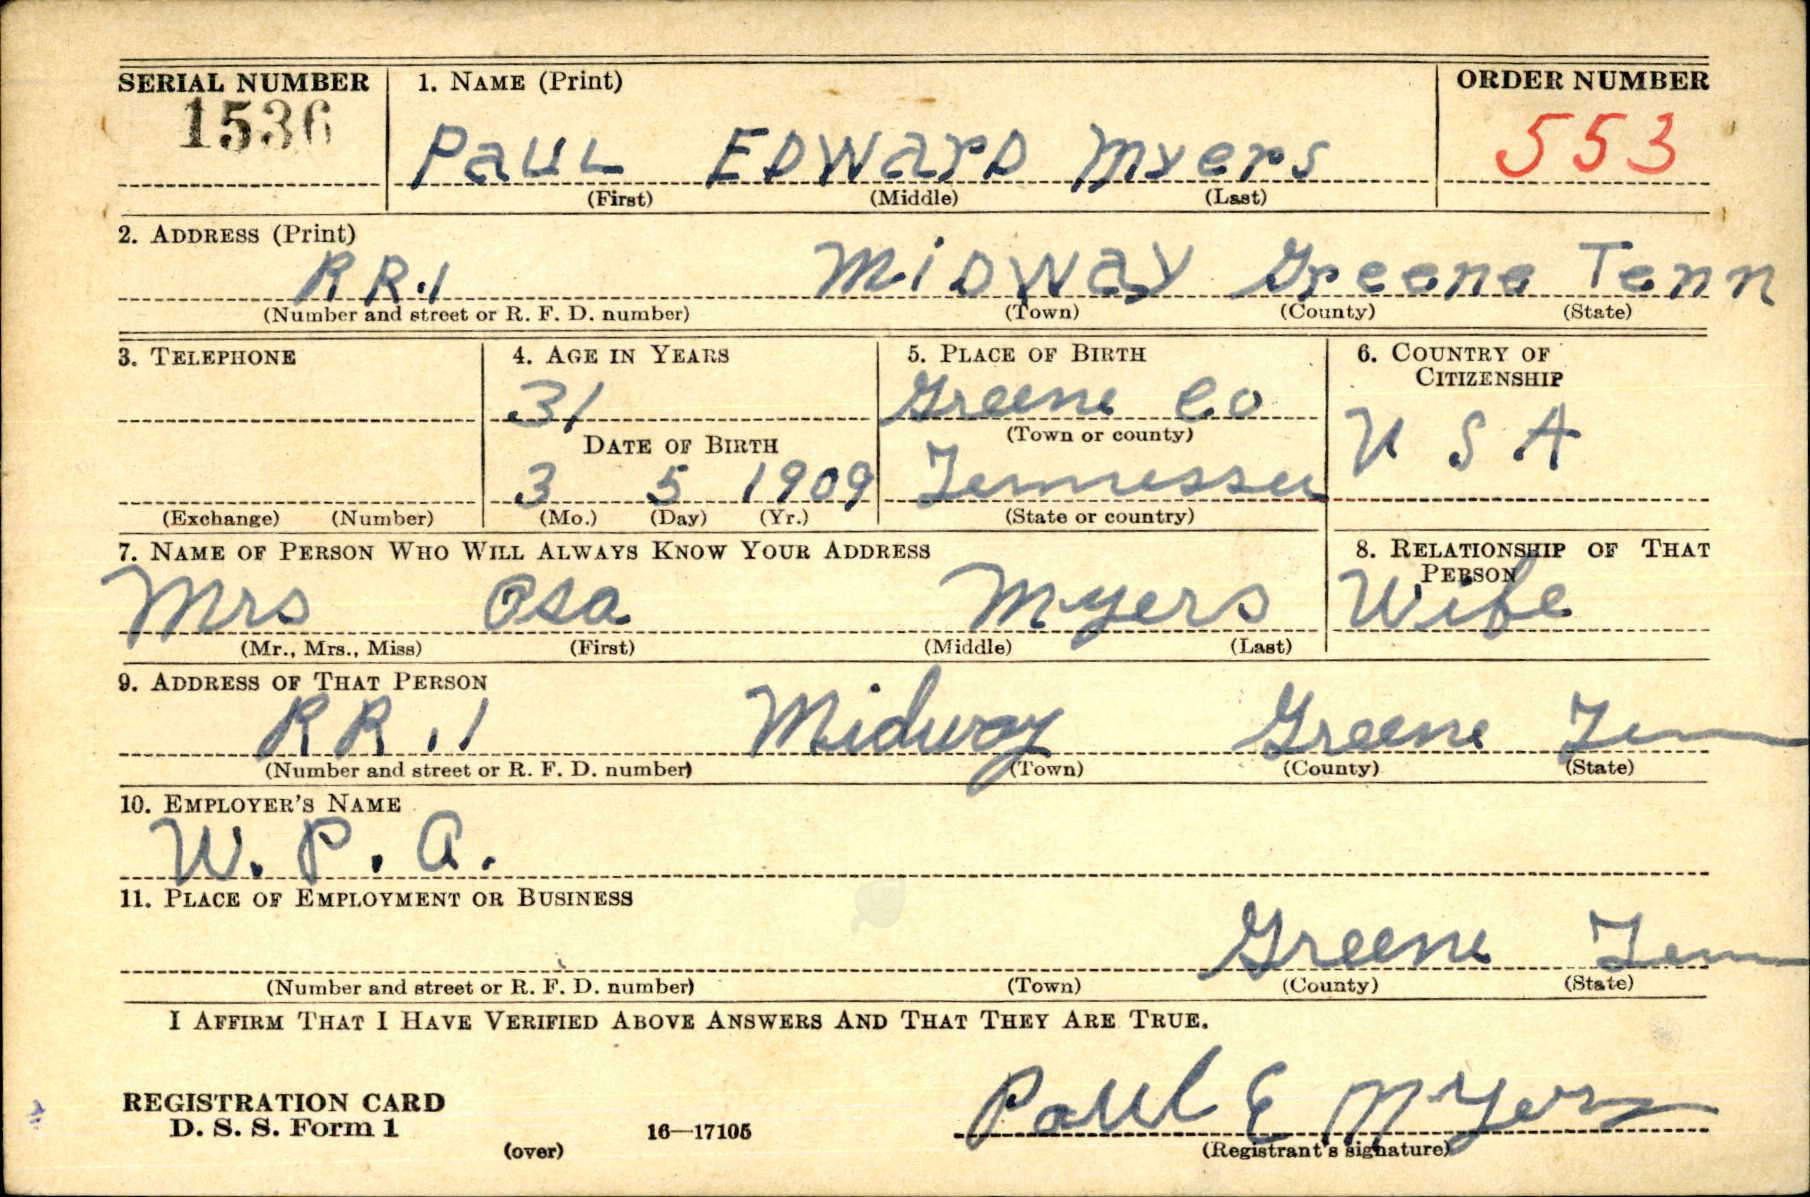 SERIAL NUMBER 1. NAME (Print) ORDER NUMBER
1536 PAUL EDWARD Myers 553
(First) (Middle) (Last)
2. ADDRESS (Print)
RR.1 MIDWAY Greene Tenn
(Number and street or R. F. D. number) (Town) (County) (State)
3. TELEPHONE 4. AGE IN YEARS 5. PLACE OF BIRTH 6. COUNTRY OF
CITIZENSHIP
31 Greene Co
(Town or county)
DATE OF BIRTH U S A
3 5 1909 Tennessee
(Exchange) (Number) (Mo.) (Day) (Yr.) (State or country)
7. NAME OF PERSON WHO WILL ALWAYS KNOW YOUR ADDRESS 8. RELATIONSHIP OF THAT
PERSON
Mrs Osa Myers Wife
(Mr., Mrs., Miss) (First) (Middle) (Last)
9. ADDRESS OF THAT PERSON
RR.1 Midway Greene Tenn
(Number and street or R. F. D. number) (Town) (County) (State)
10. EMPLOYER'S NAME
W. P. A.
11. PLACE OF EMPLOYMENT OR BUSINESS
Greene Tenn
(Number and street or R. F. D. number) (Town) (County) (State)
I AFFIRM THAT I HAVE VERIFIED ABOVE ANSWERS AND THAT THEY ARE TRUE.
REGISTRATION CARD
D. S. S. Form 1 (over) 16—17105 Paul E Myers
(Registrant's signature)